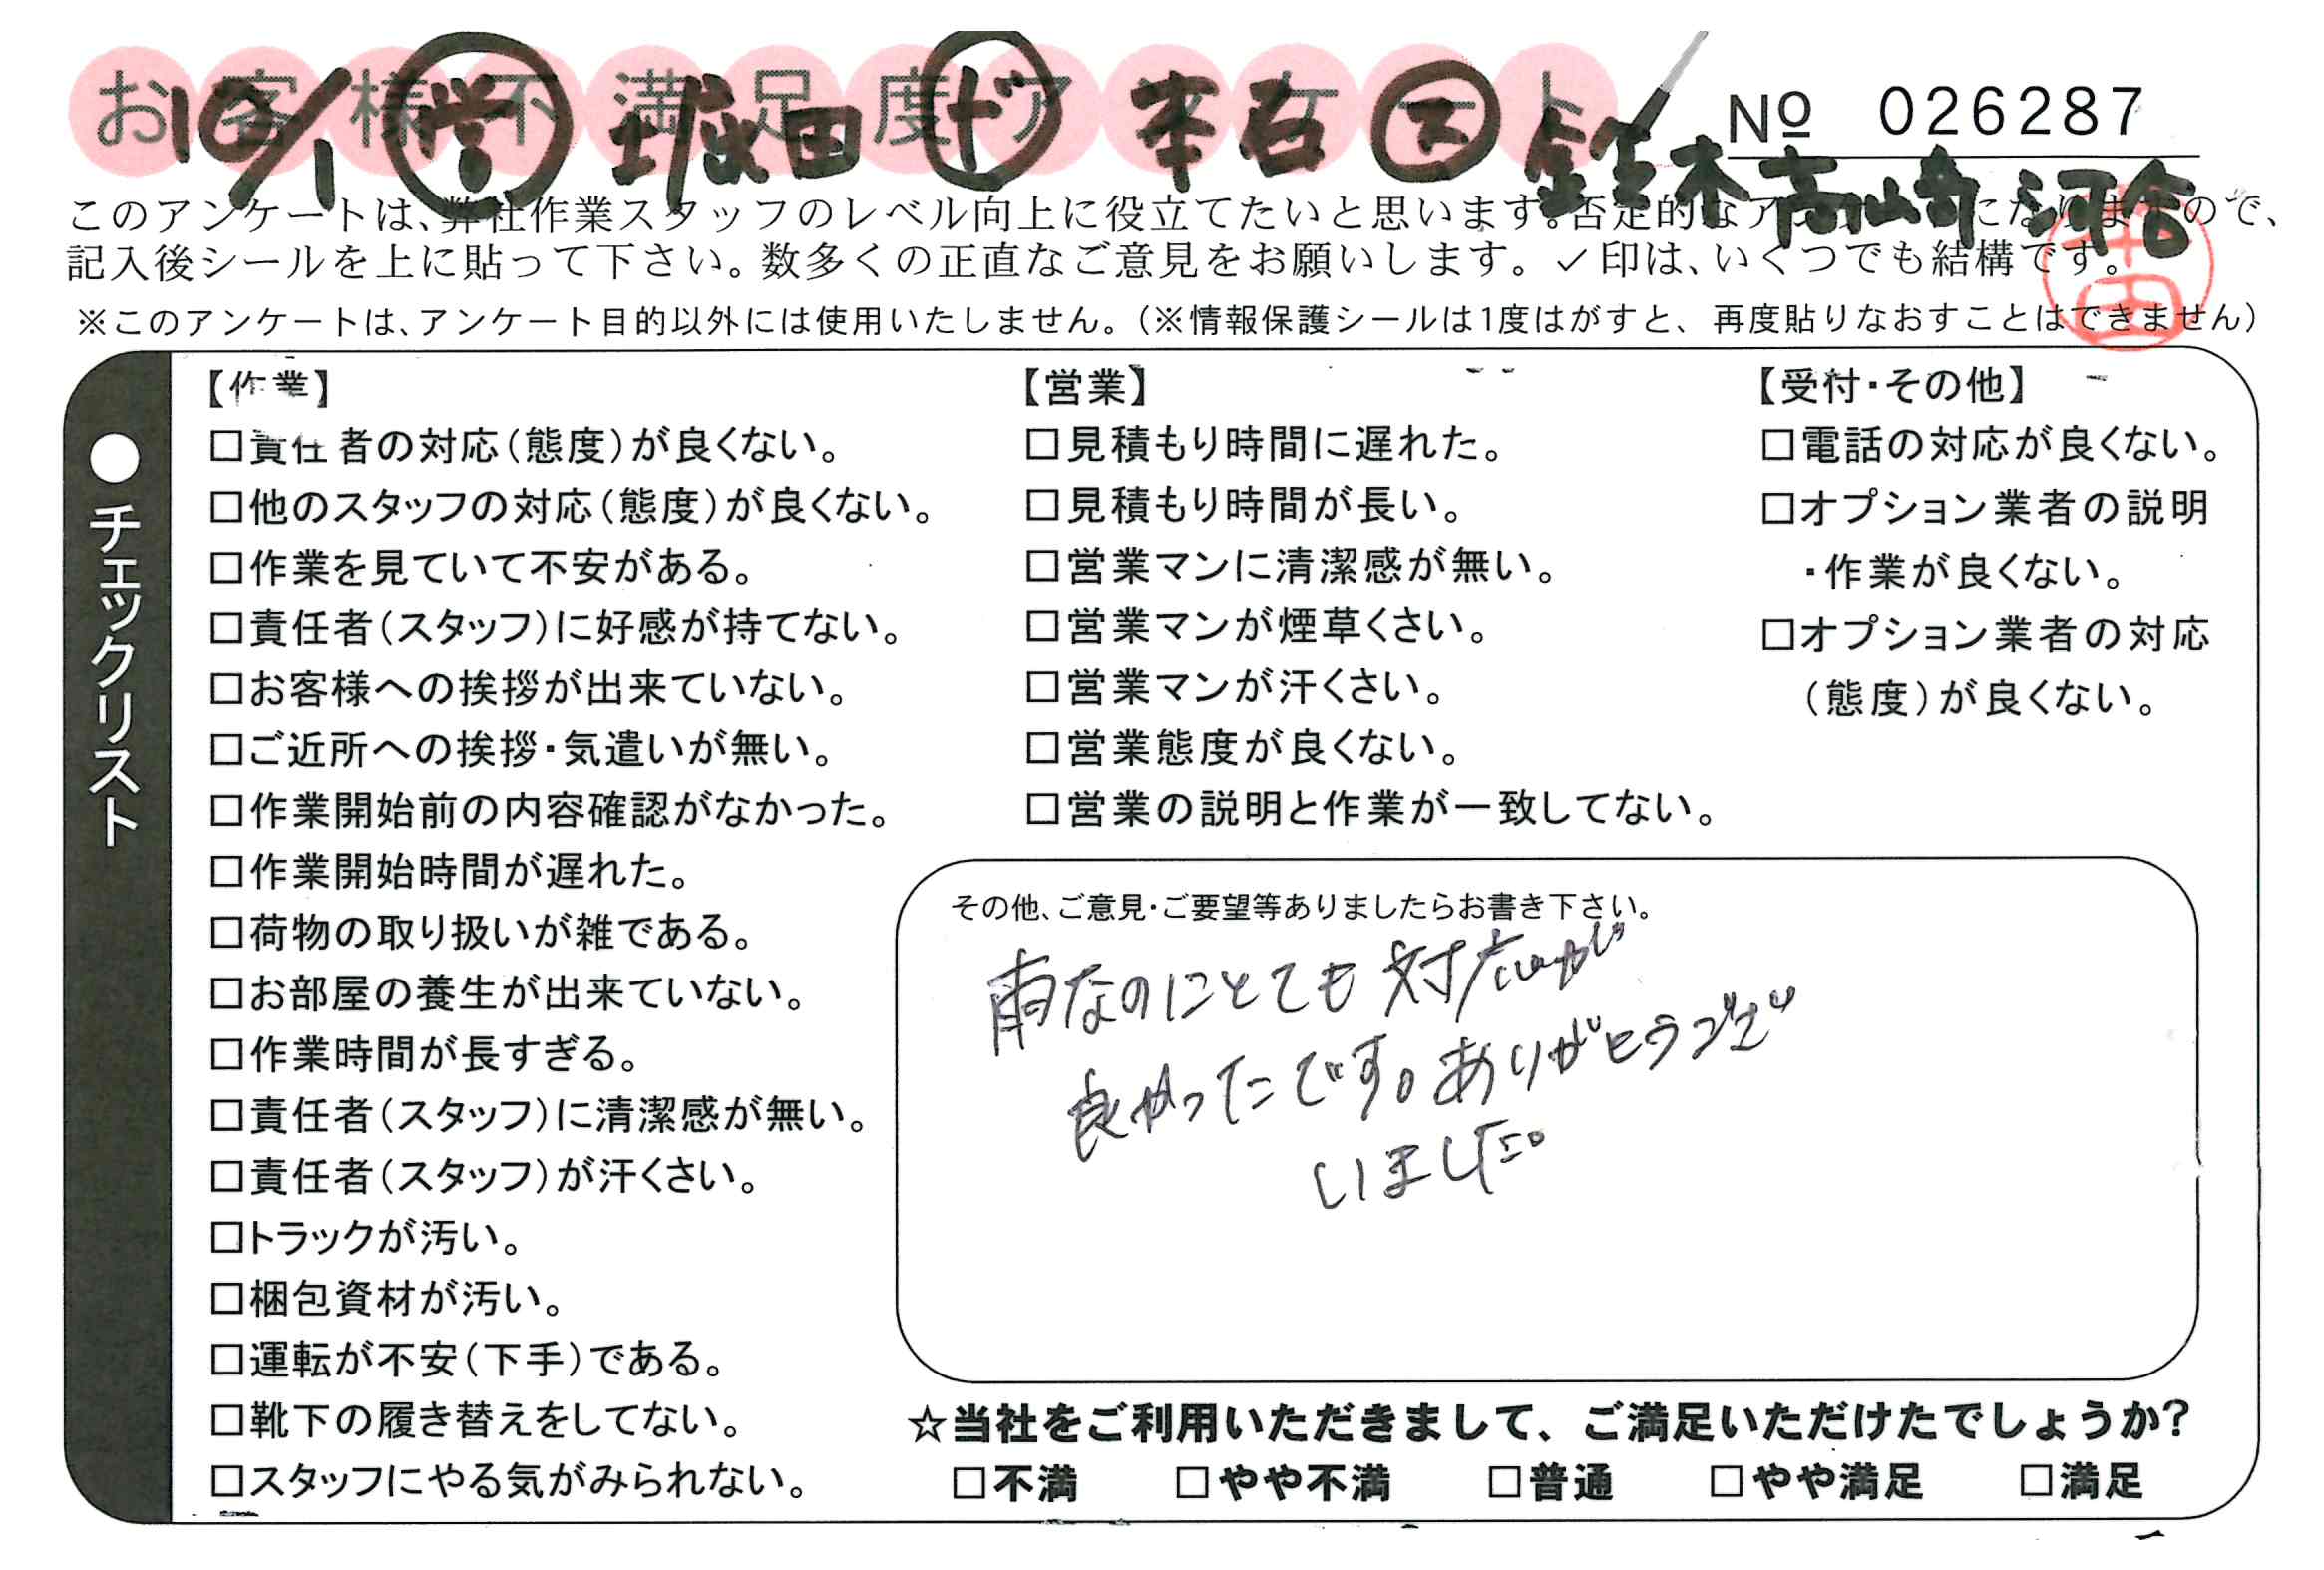 お客様不満足度アンケート
10/1 営 堀田 ド 本石 ス 鈴木 高山奇 河合
№ 026287
このアンケートは、弊社作業スタッフのレベル向上に役立てたいと思います。否定的なア になりますので、
記入後シールを上に貼って下さい。数多くの正直なご意見をお願いします。✓印は、いくつでも結構です。
※このアンケートは、アンケート目的以外には使用いたしません。(※情報保護シールは1度はがすと、再度貼りなおすことはできません)
●チェックリスト
【作業】
□責任者の対応(態度)が良くない。
□他のスタッフの対応(態度)が良くない。
□作業を見ていて不安がある。
□責任者(スタッフ)に好感が持てない。
□お客様への挨拶が出来ていない。
□ご近所への挨拶・気遣いが無い。
□作業開始前の内容確認がなかった。
□作業開始時間が遅れた。
□荷物の取り扱いが雑である。
□お部屋の養生が出来ていない。
□作業時間が長すぎる。
□責任者(スタッフ)に清潔感が無い。
□責任者(スタッフ)が汗くさい。
□トラックが汚い。
□梱包資材が汚い。
□運転が不安(下手)である。
□靴下の履き替えをしてない。
□スタッフにやる気がみられない。
【営業】
□見積もり時間に遅れた。
□見積もり時間が長い。
□営業マンに清潔感が無い。
□営業マンが煙草くさい。
□営業マンが汗くさい。
□営業態度が良くない。
□営業の説明と作業が一致してない。
【受付・その他】
□電話の対応が良くない。
□オプション業者の説明
・作業が良くない。
□オプション業者の対応
(態度)が良くない。
その他、ご意見・ご要望等ありましたらお書き下さい。
雨なのにとても対応が
良かったです。ありがとうござ
いました。
☆当社をご利用いただきまして、ご満足いただけたでしょうか?
□不満 □やや不満 □普通 □やや満足 □満足